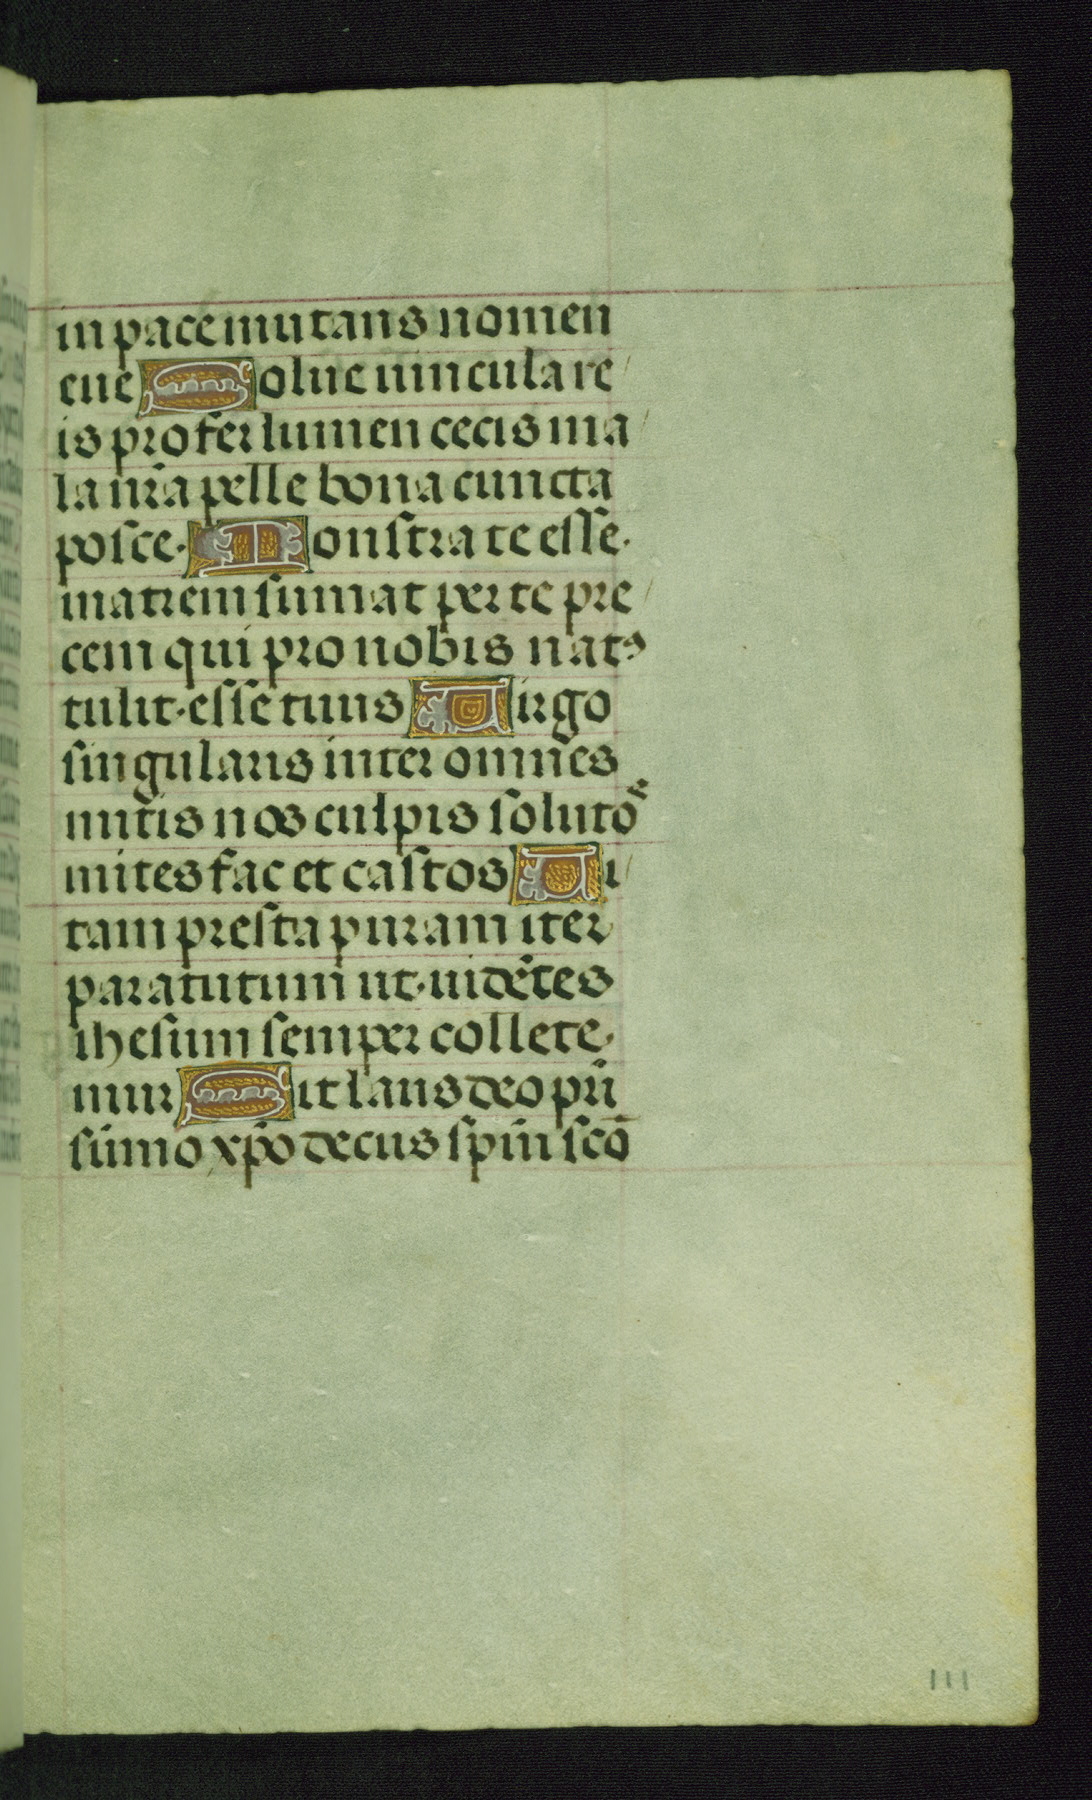 in pace mutans nomen
eue Solue uincula re
is profer lumen cecis ma
la nr̃a pelle bona cuncta
posce. Monstra te esse.
matrem sumat per te pre
cem qui pro nobis natꝰ
tulit. esse tuus Uirgo
singularis inter omnes
mitis nos culpis solutõs
mites fac et castos Ui
tam presta puram iter
para tutum ut. uidẽtes
ihesum semper collete.
mur Sit laus deo pr̃i
sũmo xp̃o decus sp̃ui sc̃o
111